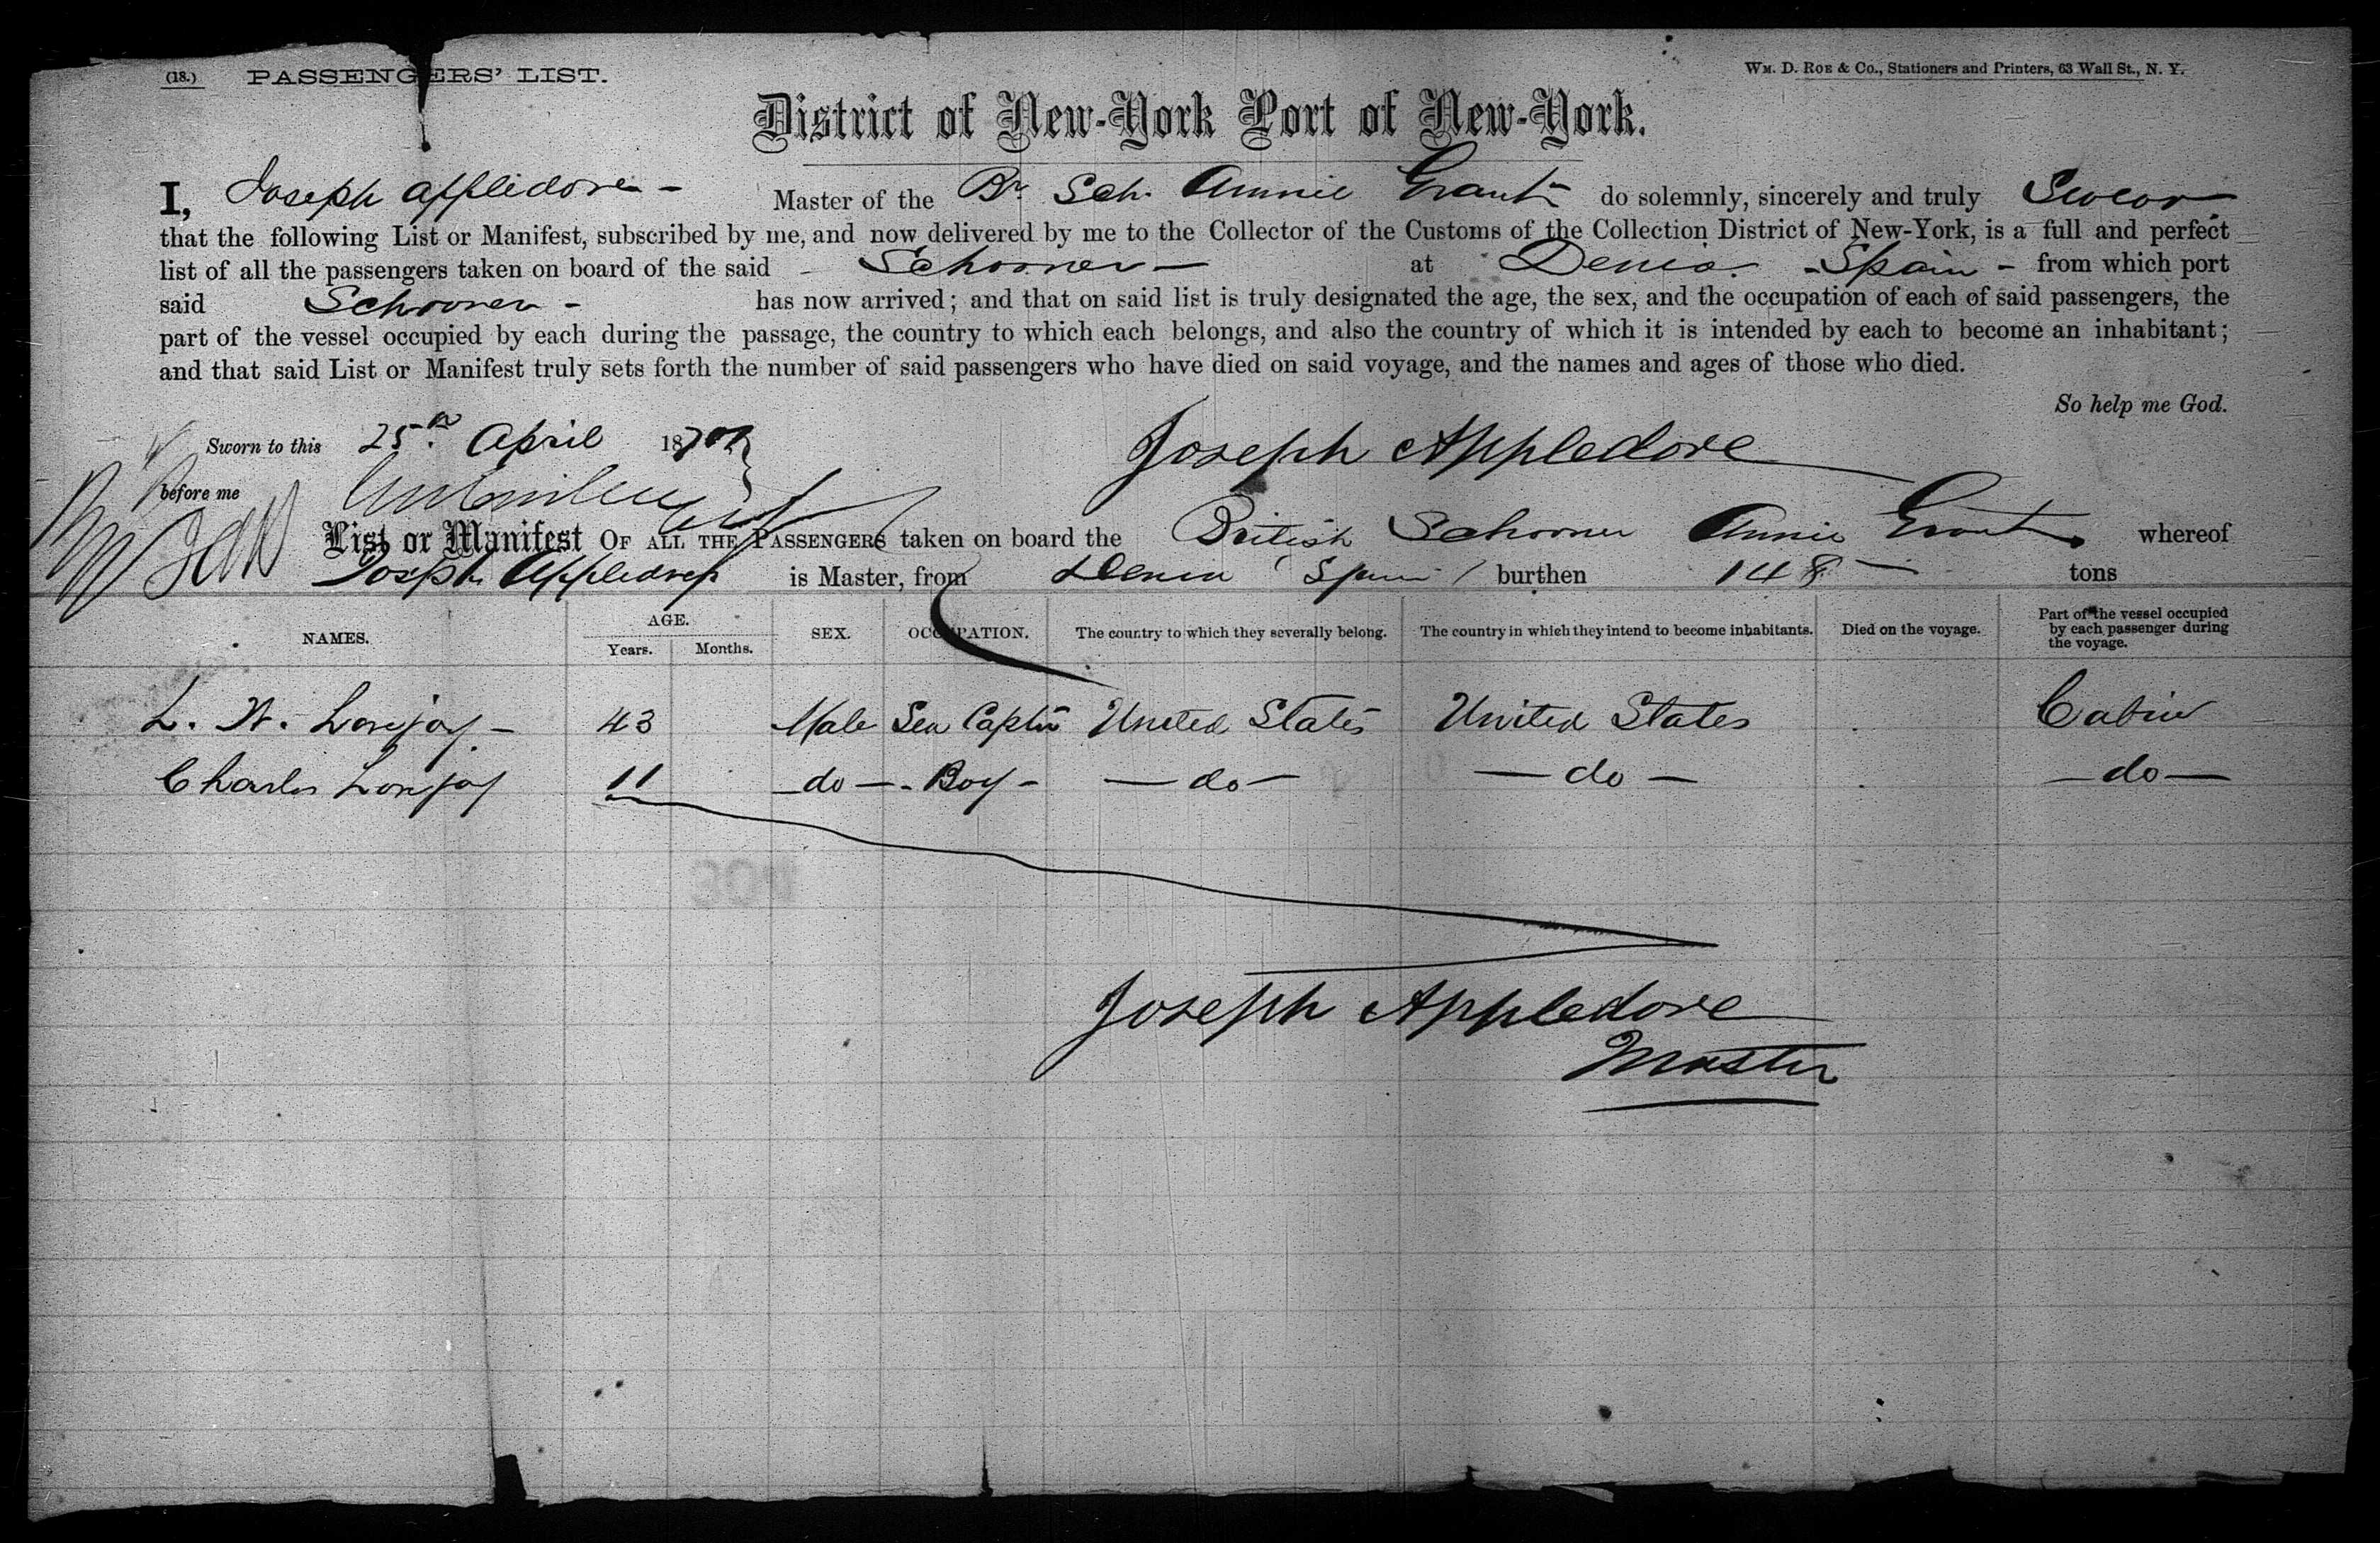 (18.) PASSENGERS' LIST.
WM. D. ROE & CO., Stationers and Printers, 63 Wall St., N. Y.
District of New-York Port of New-York.
I, Joseph Appledore - Master of the Br Sch. Annie Grant - do solemnly, sincerely and truly Swear
that the following List or Manifest, subscribed by me, and now delivered by me to the Collector of the Customs of the Collection District of New-York, is a full and perfect
list of all the passengers taken on board of the said - Schooner - at Denia. - Spain - from which port
said Schooner - has now arrived; and that on said list is truly designated the age, the sex, and the occupation of each of said passengers, the
part of the vessel occupied by each during the passage, the country to which each belongs, and also the country of which it is intended by each to become an inhabitant;
and that said List or Manifest truly sets forth the number of said passengers who have died on said voyage, and the names and ages of those who died.
So help me God.
Sworn to this 25th April 18
Joseph Appledore
before me
List or Manifest OF ALL THE PASSENGERS taken on board the British Schooner Annie Grant whereof
Joseph Appledore is Master, from Denia (Spain) burthen 148 - tons
NAMES. AGE. Years. Months. SEX. OCCUPATION. The country to which they severally belong. The country in which they intend to become inhabitants. Died on the voyage. Part of the vessel occupied by each passenger during the voyage.
L. W. Lovejoy - 43 Male Sea Captin United States United States Cabin
Charles Lovejoy 11 - do - - Boy - - do - - do - - do -
Joseph Appledore
Master